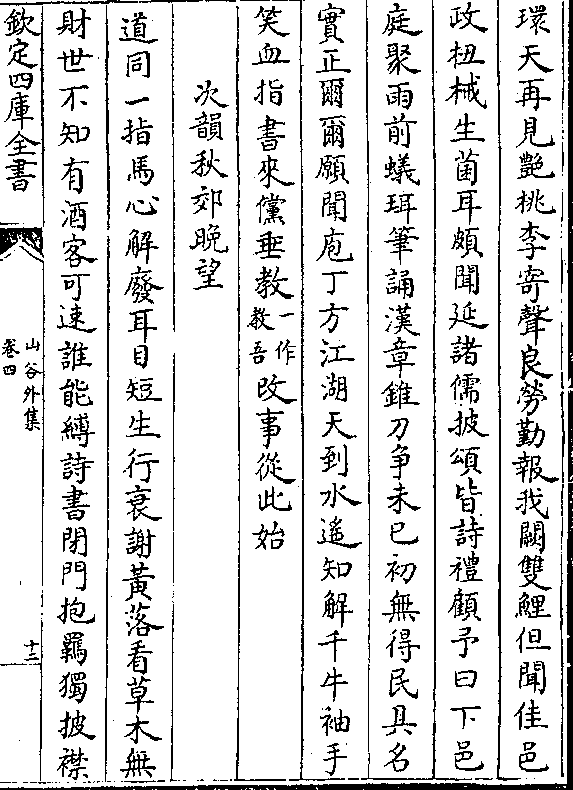 環天再見艷桃李寄聲良勞勤報我闕雙鯉但聞佳邑
政杻械生菌耳頗聞延諸儒披頌皆詩禮顧予曰下邑
庭聚雨前蟻珥筆誦漢章錐刀争未已初無得民具名
實正爾爾願聞庖丁方江湖天到水遥知解千牛袖手
笑血指書來儻垂教一作教吾改事從此始
次韻秋郊晚望
道同一指馬心解廢耳目短生行衰謝黃落看草木無
財世不知有酒客可速誰能縛詩書閉門抱羈獨披襟
欽定四庫全書
山谷外集
卷四
十三